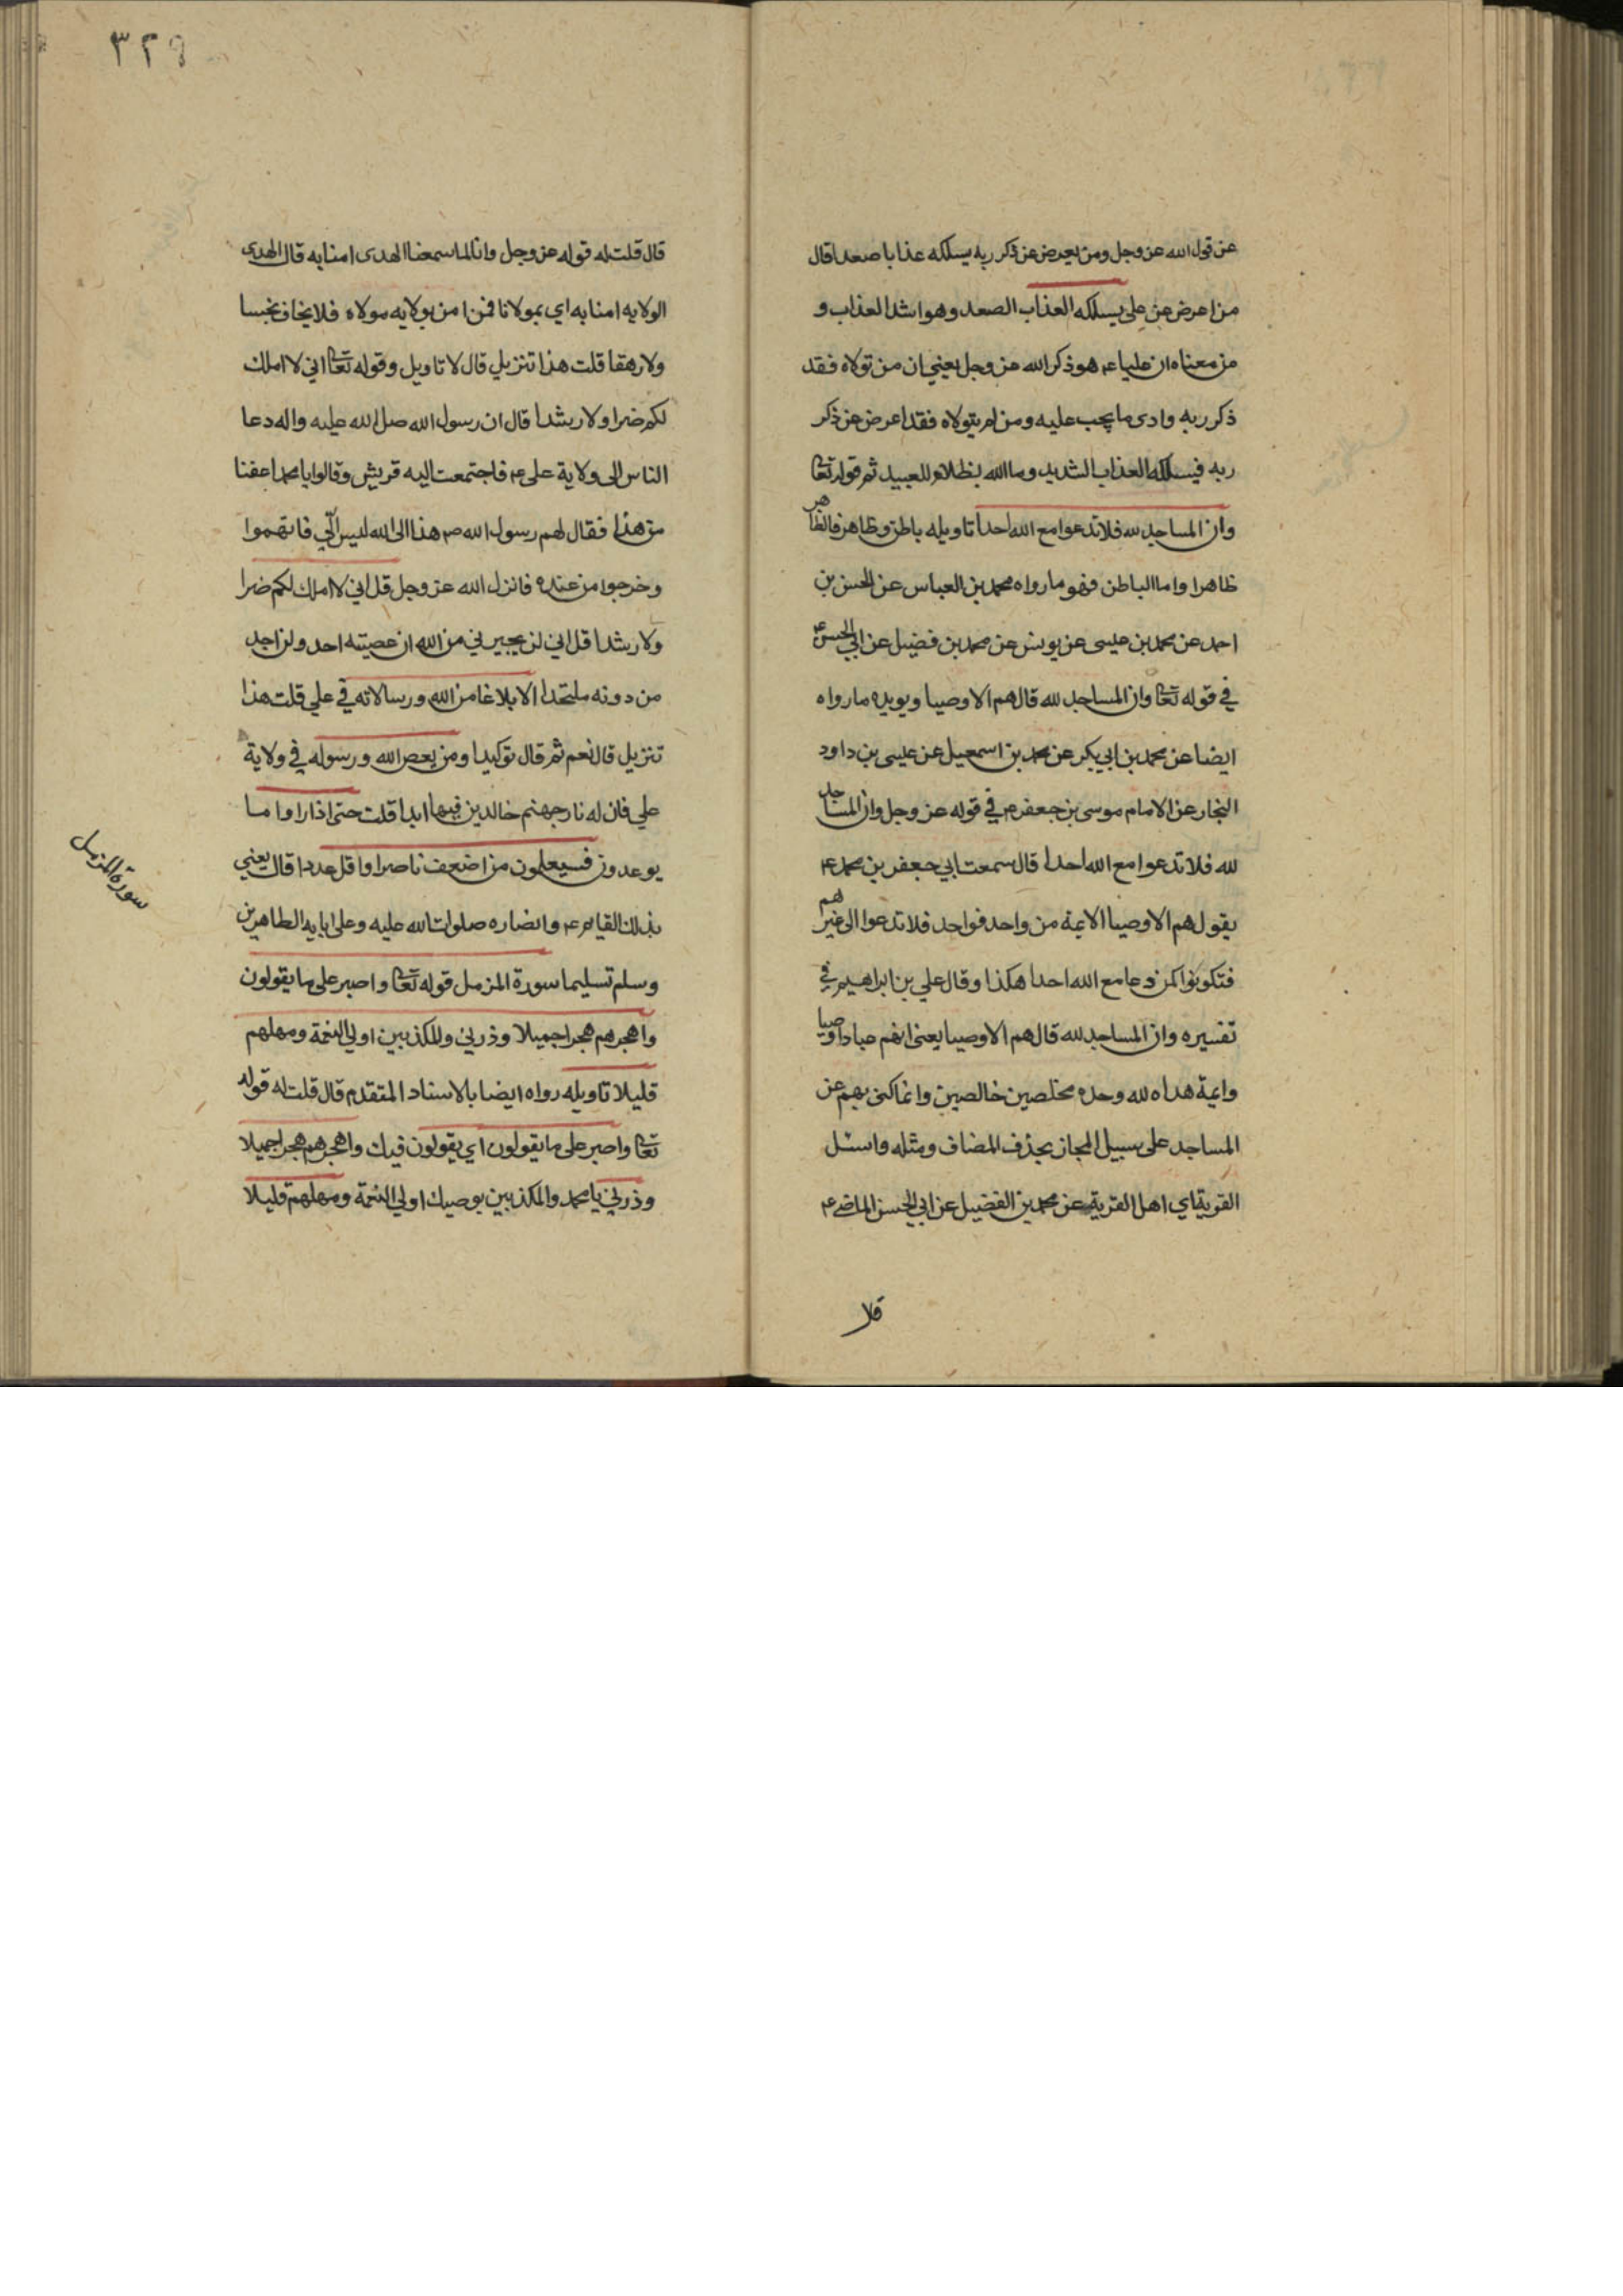 عن قول الله عز وجل ومن يعرض عن ذكر ربه يسلكه عذابا صعدا قال
من اعرض عن علي يسلكه العذاب الصعد وهو اشد العذاب و
من معناه ان عليا ع هو ذكر الله عز وجل يعني ان من تولاه فقد
ذكر ربه وادى ما يجب عليه ومن لم يتولاه فقد اعرض عن ذكر
ربه فيسلكه العذاب الشديد وما الله بظلام للعبيد ثم قوله تعا
وان المساجد لله فلا تدعوا مع الله احدا تاويله باطن وظاهر فالظاهر
ظاهرا واما الباطن فهو ما رواه محمد بن العباس عن الحسن بن
احمد عن محمد بن عيسى عن يونس عن محمد بن فضيل عن ابي الحسن ع
في قوله تعا وان المساجد لله قال هم الاوصيا ويويده ما رواه
ايضا عن محمد بن ابي بكر عن محمد بن اسمعيل عن عيسى بن داود
النجار عن الامام موسى بن جعفر ع في قوله عز وجل وان المساجد
لله فلا تدعوا مع الله احدا قال سمعت ابي جعفر بن محمد ع
يقول هم الاوصيا الايمة من واحد فواحد فلا تدعوا الى غيرهم
فتكونوا كمن دعا مع الله احدا هكذا وقال علي بن ابراهيم في
تفسيره وان المساجد لله قال هم الاوصيا يعنى انهم عبادا اوصيا
وايمة هداه لله وحده مخلصين خالصين وانما كنى بهم عن
المساجد على سبيل المجاز بحذف المضاف ومثله واسئل
القرية اي اهل القرية عن محمد بن الفضيل عن ابي الحسن الماضي ع
٣٢٩
قال قلت له قوله عز وجل وانا لما سمعنا الهدى امنا به قال الهدى
الولايه امنا به اي بمولانا فمن امن بولايه مولاه فلا يخاف بخسا
ولا رهقا قلت هذا تنزيل قال لا تاويل وقوله تعا اني لا املك
لكم ضرا ولا رشدا قال ان رسول الله صلى الله عليه واله دعا
الناس الى ولاية على ع فاجتمعت اليه قريش وقالوا يا محمد اعفنا
من هذا فقال لهم رسول الله ص هذا الى الله ليس الّي فاتهموا
وخرجوا من عنده فانزل الله عز وجل قل اني لا املك لكم ضرا
ولا رشدا قل اني لن يجيرني من الله ان عصيته احد ولن اجد
من دونه ملتحدا الا بلاغا من الله ورسالاته في علي قلت هذا
تنزيل قال نعم ثم قال توكيدا ومن يعص الله ورسوله في ولاية
علي فان له نار جهنم خالدين فيها ابدا قلت حتى اذا راوا ما
يوعدون فسيعلمون من اضعف ناصرا واقل عددا قال يعني
بذلك القايم ع وانصاره صلوات الله عليه وعلى ابايه الطاهرين
وسلم تسليما سورة المزمل قوله تعا واصبر على ما يقولون
واهجرهم هجرا جميلا وذرني والمكذبين اولي النعمة ومهلهم
قليلا تاويله رواه ايضا بالاسناد المتقدم قال قلت له قوله
تعا واصبر على ما يقولون اي يقولون فيك واهجرهم هجرا جميلا
وذرني يا محمد والمكذبين بوصيك اولي النعمة ومهلهم قليلا
سورة المزمل